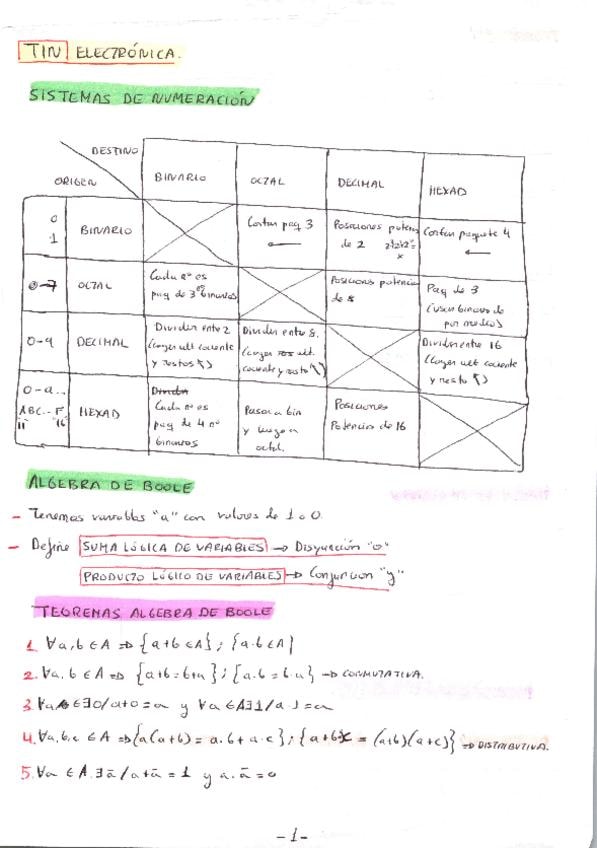 TIN ELECTRÓNICA.
SISTEMAS DE NUMERACIÓN
DESTINO
ORIGEN
BINARIO
OCTAL
DECIMAL
HEXAD
0
1
BINARIO
Cortar paq 3
←
Posiciones potencia
de 2
Cortar paquete 4
←
0-7
OCTAL
Cada nº es
paq de 3 nº binarios
Posiciones potencia
de 8
Paq de 3
(usar binario de
por medio)
0-9
DECIMAL
Dividir entre 2
(coger ult cociente
y restos ↖)
Dividir entre 8.
(coger ult.
cociente y resto ↖)
Dividir entre 16
(coger ult cociente
y resto ↖)
0-a...
ABC...F
11 16
HEXAD
Dividir
Cada nº es
paq de 4 nº
binarios
Pasar a bin
y luego a
octal.
Posiciones
Potencia de 16
ALGEBRA DE BOOLE
- Tenemos variables "a" con valores de 1 o 0.
- Define SUMA LÓGICA DE VARIABLES → Disyunción "o"
PRODUCTO LÓGICO DE VARIABLES → Conjuncion "y"
TEOREMAS ALGEBRA DE BOOLE
1. ∀a,b ∈ A ⇒ {a+b ∈ A} ; {a·b ∈ A}
2. ∀a,b ∈ A ⇒ {a+b = b+a} ; {a·b = b·a} → CONMUTATIVA.
3. ∀a ∈ ∃0/a+0=a y ∀a ∈ A∃1/a·1=a
4. ∀a,b,c ∈ A ⇒ {a(a+b) = a·b + a·c} ; {a+b·c = (a+b)(a+c)} ⇒ DISTRIBUTIVA.
5. ∀a ∈ A, ∃ā/a+ā = 1 y a·ā = 0
-1-